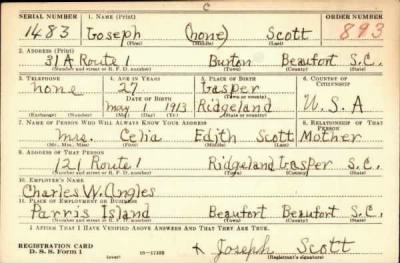 C
SERIAL NUMBER 1. NAME (Print) ORDER NUMBER
1483 Joseph (none) Scott 893
(First) (Middle) (Last)
2. ADDRESS (Print)
31A Route 1 Burton Beaufort S.C.
(Number and street or R. F. D. number) (Town) (County) (State)
3. TELEPHONE 4. AGE IN YEARS 5. PLACE OF BIRTH 6. COUNTRY OF CITIZENSHIP
none 27 Jasper
DATE OF BIRTH (Town or county)
May 1 1913 Ridgeland U.S.A
(Exchange) (Number) (Mo.) (Day) (Yr.) (State or country)
7. NAME OF PERSON WHO WILL ALWAYS KNOW YOUR ADDRESS 8. RELATIONSHIP OF THAT PERSON
Mrs. Celia Edith Scott Mother
(Mr., Mrs., Miss) (First) (Middle) (Last)
9. ADDRESS OF THAT PERSON
121 Route 1 Ridgeland Jasper S.C.
(Number and street or R. F. D. number) (Town) (County) (State)
10. EMPLOYER'S NAME
Charles W. Angles
11. PLACE OF EMPLOYMENT OR BUSINESS
Parris Island Beaufort Beaufort S.C.
(Number and street or R. F. D. number) (Town) (County) (State)
I AFFIRM THAT I HAVE VERIFIED ABOVE ANSWERS AND THAT THEY ARE TRUE.
REGISTRATION CARD
D. S. S. Form 1 (over) x Joseph Scott
(Registrant's signature)